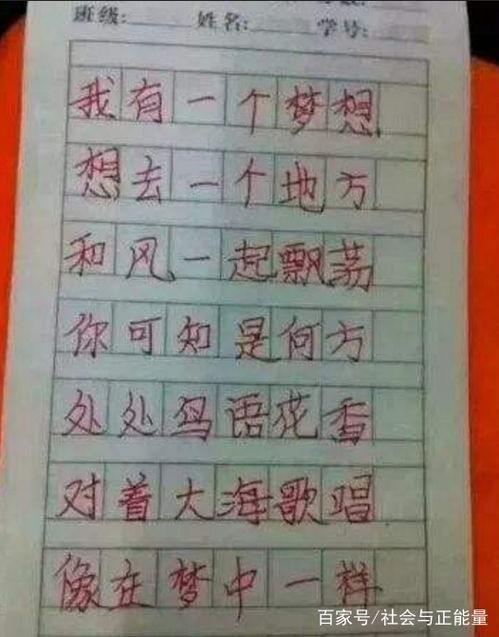 班级: 姓名: 学号:
我有一个梦想
想去一个地方
和风一起飘荔
你可知是何方
处处鸟语花香
对着大海歌唱
像在梦中一样
百家号/社会与正能量